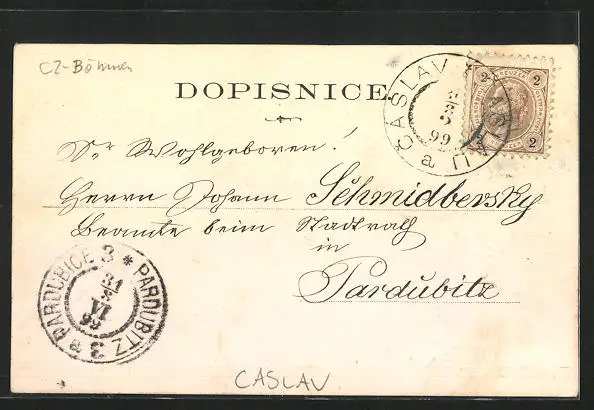 CZ-Böhmen
DOPISNICE
ČÁSLAV
a
99
2 KREUZER 2
2 2
Sr Wohlgeboren!
Herrn Johann Schmidbersky
Beamte beim Stadtrath
in
Pardubitz
PARDUBICE 3 * PARDUBITZ 3 a
31
VI
99
CASLAV